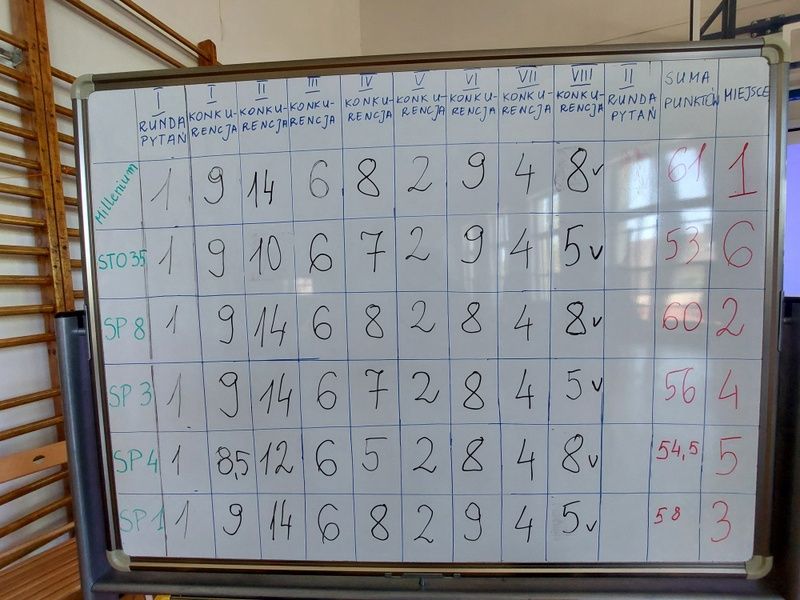 I RUNDA PYTAŃ I KONKU-RENCJA II KONKU-RENCJA III KONKU-RENCJA IV KONKU-RENCJA V KONKU-RENCJA VI KONKU-RENCJA VII KONKU-RENCJA VIII KONKU-RENCJA II RUNDA PYTAŃ SUMA PUNKTÓW MIEJSCE
Millenium 1 9 14 6 8 2 9 4 8 v 61 1
STO 35 1 9 10 6 7 2 9 4 5 v 53 6
SP 8 1 9 14 6 8 2 8 4 8 v 60 2
SP 3 1 9 14 6 7 2 8 4 5 v 56 4
SP 4 1 8,5 12 6 5 2 8 4 8 v 54,5 5
SP 1 1 9 14 6 8 2 9 4 5 v 58 3